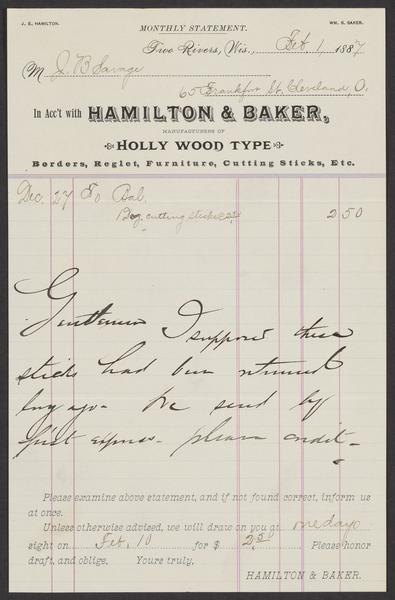 J. E. HAMILTON. WM. S. BAKER.
MONTHLY STATEMENT.
Two Rivers, Wis., Feb. 1, 1887
M J. B Savage
65 Frankfort St, Cleveland, O.
In Acc't with HAMILTON & BAKER,
MANUFACTURERS OF
HOLLY WOOD TYPE
Borders, Reglet, Furniture, Cutting Sticks, Etc.
Dec. 27 To Bal.
Doz. cutting sticks 2 50
Gentlemen I suppose these
sticks had been returned
long ago - We send by
first express. please credit -
Please examine above statement, and if not found correct, inform us
at once.
Unless otherwise advised, we will draw on you at one days
sight on Feb. 10 for $ 2.50 Please honor
draft, and oblige, Yours truly,
HAMILTON & BAKER.